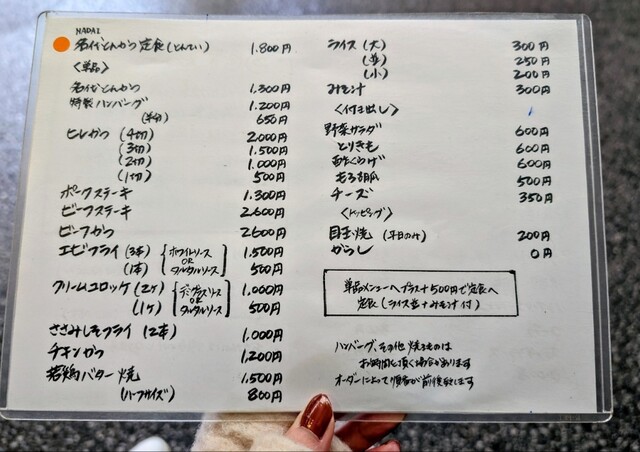 NADAI
名代とんかつ定食(とんてい) 1.800円
〈単品〉
名代とんかつ 1,300円
特製ハンバーグ 1.200円
(半分) 650円
ヒレかつ (4切) 2000円
(3切) 1.500円
(2切) 1.000円
(1切) 500円
ポークステーキ 1.300円
ビーフステーキ 2600円
ビーフかつ 2600円
エビフライ (3本) ホワイトソース 1,500円
OR
(1本) タルタルソース 500円
クリームコロッケ (2ヶ) デミグラスソース 1,000円
OR
(1ヶ) タルタルソース 500円
ささみしそフライ (2本) 1,000円
チキンかつ 1,200円
若鶏バター焼 1,500円
(ハーフサイズ) 800円
ライス (大) 300円
(並) 250円
(小) 200円
みそ汁 300円
〈付き出し〉
野菜サラダ 600円
とりきも 600円
酢くらげ 600円
もろ胡瓜 500円
チーズ 350円
〈トッピング〉
目玉焼 (平日のみ) 200円
からし 0円
単品メニューへプラス+500円で定食へ
定食(ライス並+みそ汁付)
ハンバーグ、その他焼きものは
お時間を頂く場合があります
オーダーによって順番が前後致します